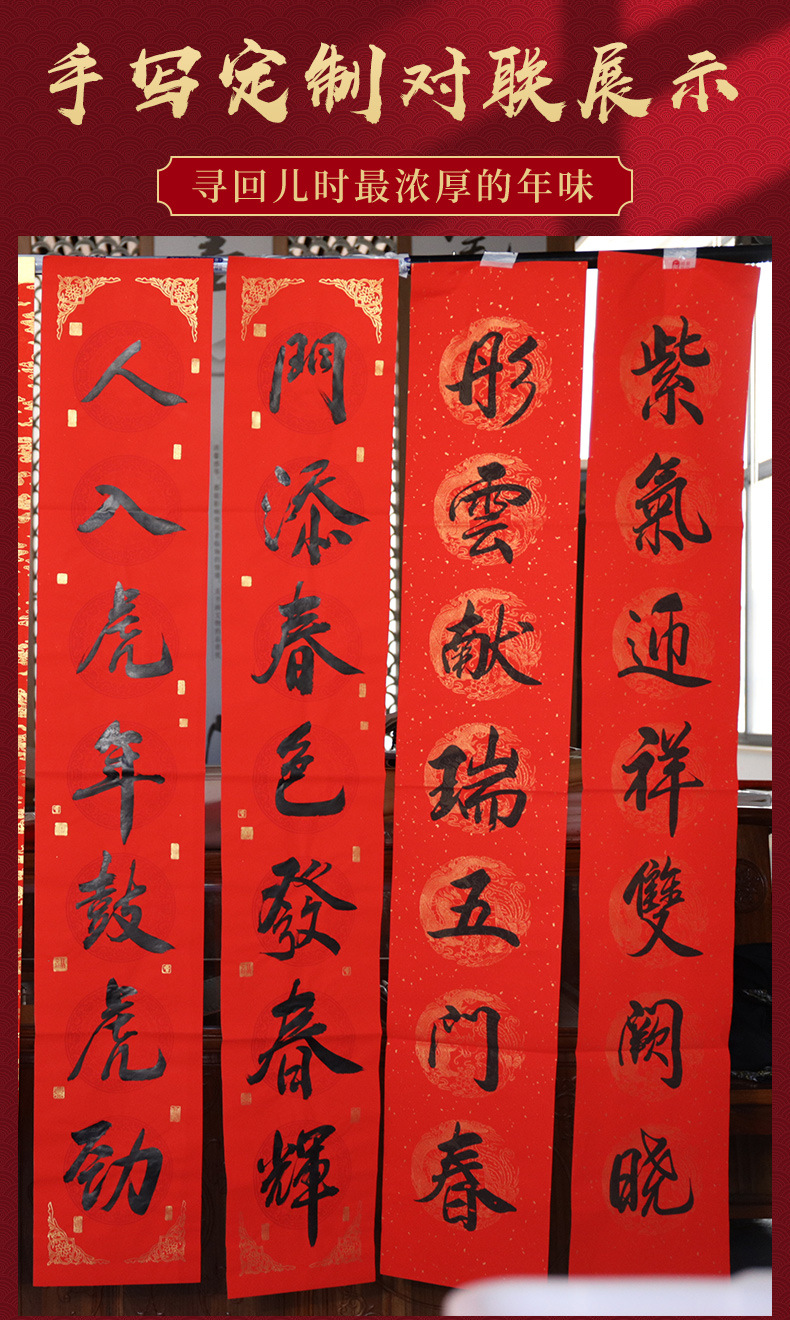 手写定制对联展示
寻回儿时最浓厚的年味
紫氣迎祥雙闕晓
彤雲献瑞五门春
門添春色發春輝
人入虎年鼓虎劲